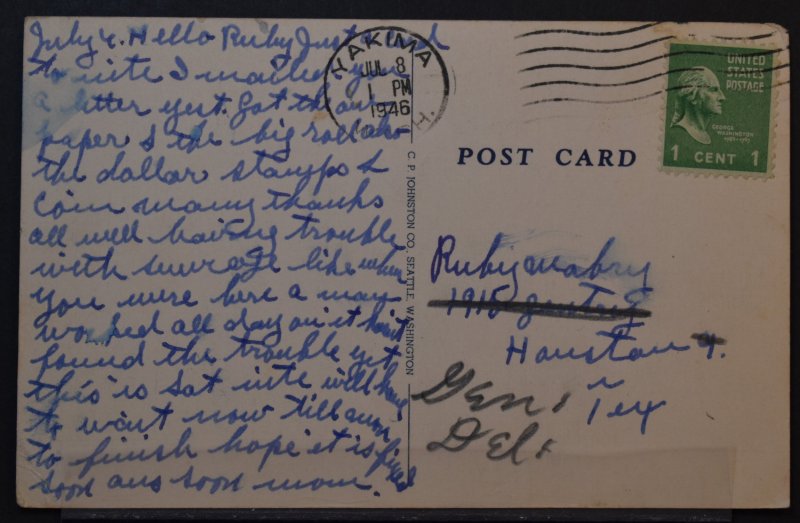 July 4. Hello Ruby Just a card
to nite I mailed you
a letter yest. Got the
paper & the big roll also
the dollar stamps &
coin many thanks
all well having trouble
with sewrage like when
you were here a man
worked all day on it hasnt
found the trouble yet
this is sat nite will have
to wait now till mon
to finish hope it is fixed
soon ans soon mom.
YAKIMA
JUL 8
1 PM
1946
UNITED
STATES
POSTAGE
GEORGE
WASHINGTON
1 CENT 1
POST CARD
C. P. JOHNSTON CO., SEATTLE, WASHINGTON
Ruby mabry
1915
Houston 4.
Tex
Gen.
Del.